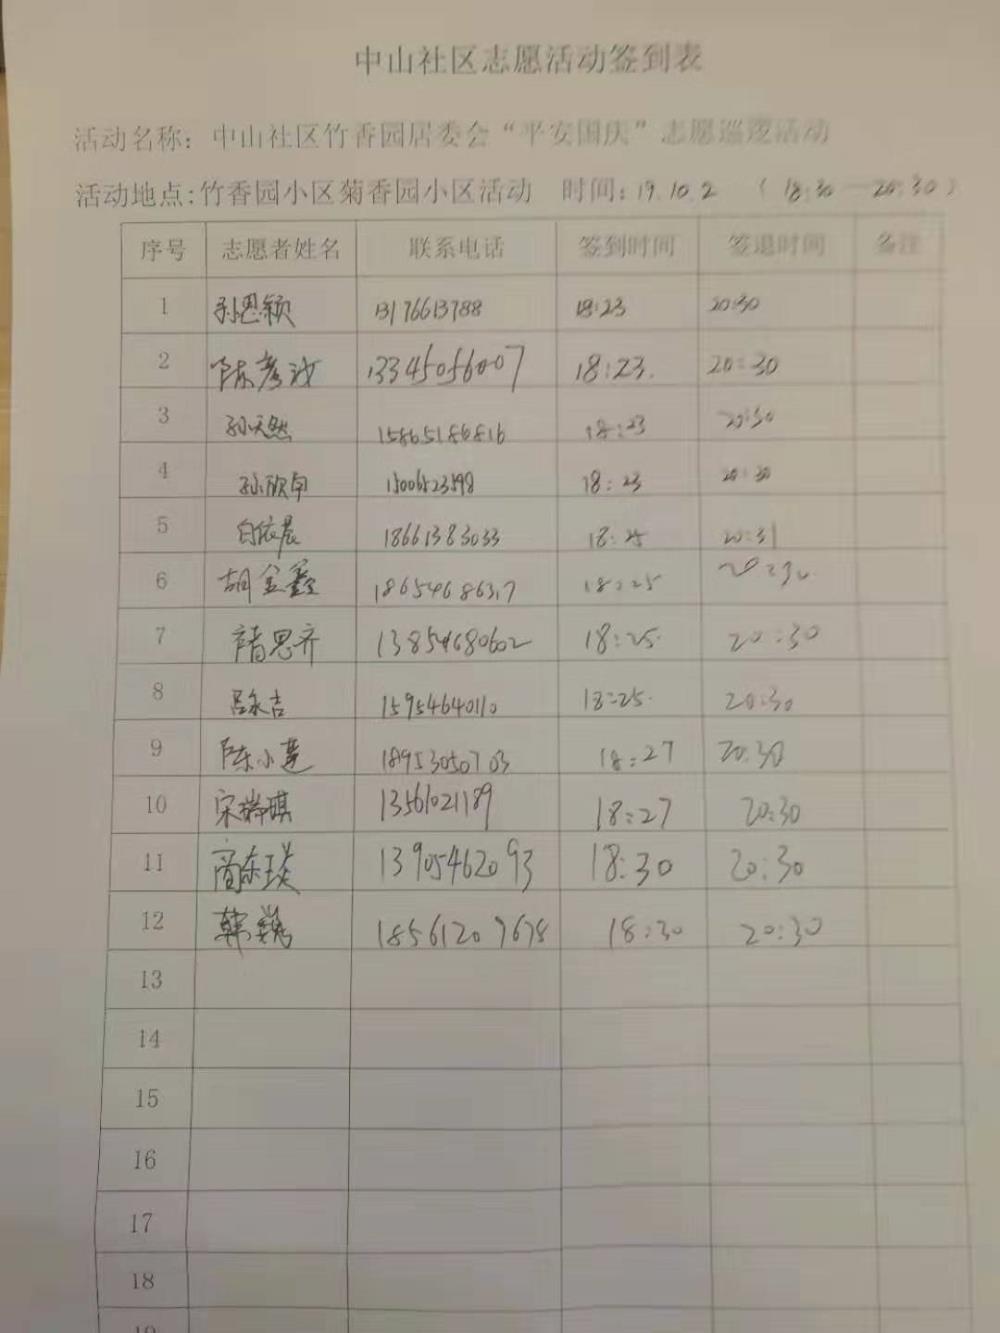 中山社区志愿活动签到表
活动名称：中山社区竹香园居委会“平安国庆”志愿巡逻活动
活动地点：竹香园小区菊香园小区活动 时间：19.10.2 （18:30—20:30）
序号 志愿者姓名 联系电话 签到时间 签退时间 备注
1 孙恩颖 13176613788 18:23 20:30
2 陈彦汝 13345056007 18:23. 20:30
3 孙天然 15865186816 18:23 20:30
4 孙欣甲 15006523598 18:23 20:30
5 白依晨 18661383033 18:25 20:31
6 胡金鑫 18654686317 18:25 20:30
7 思齐 13854680602 18:25. 20:30
8 吕永吉 15954640110 18:25. 20:30
9 陈小莲 18953050703 18:27 20:30
10 宋瑞琪 13561021189 18:27 20:30
11 商东琰 13905462093 18:30 20:30
12 韩 18561207678 18:30 20:30
13
14
15
16
17
18
19